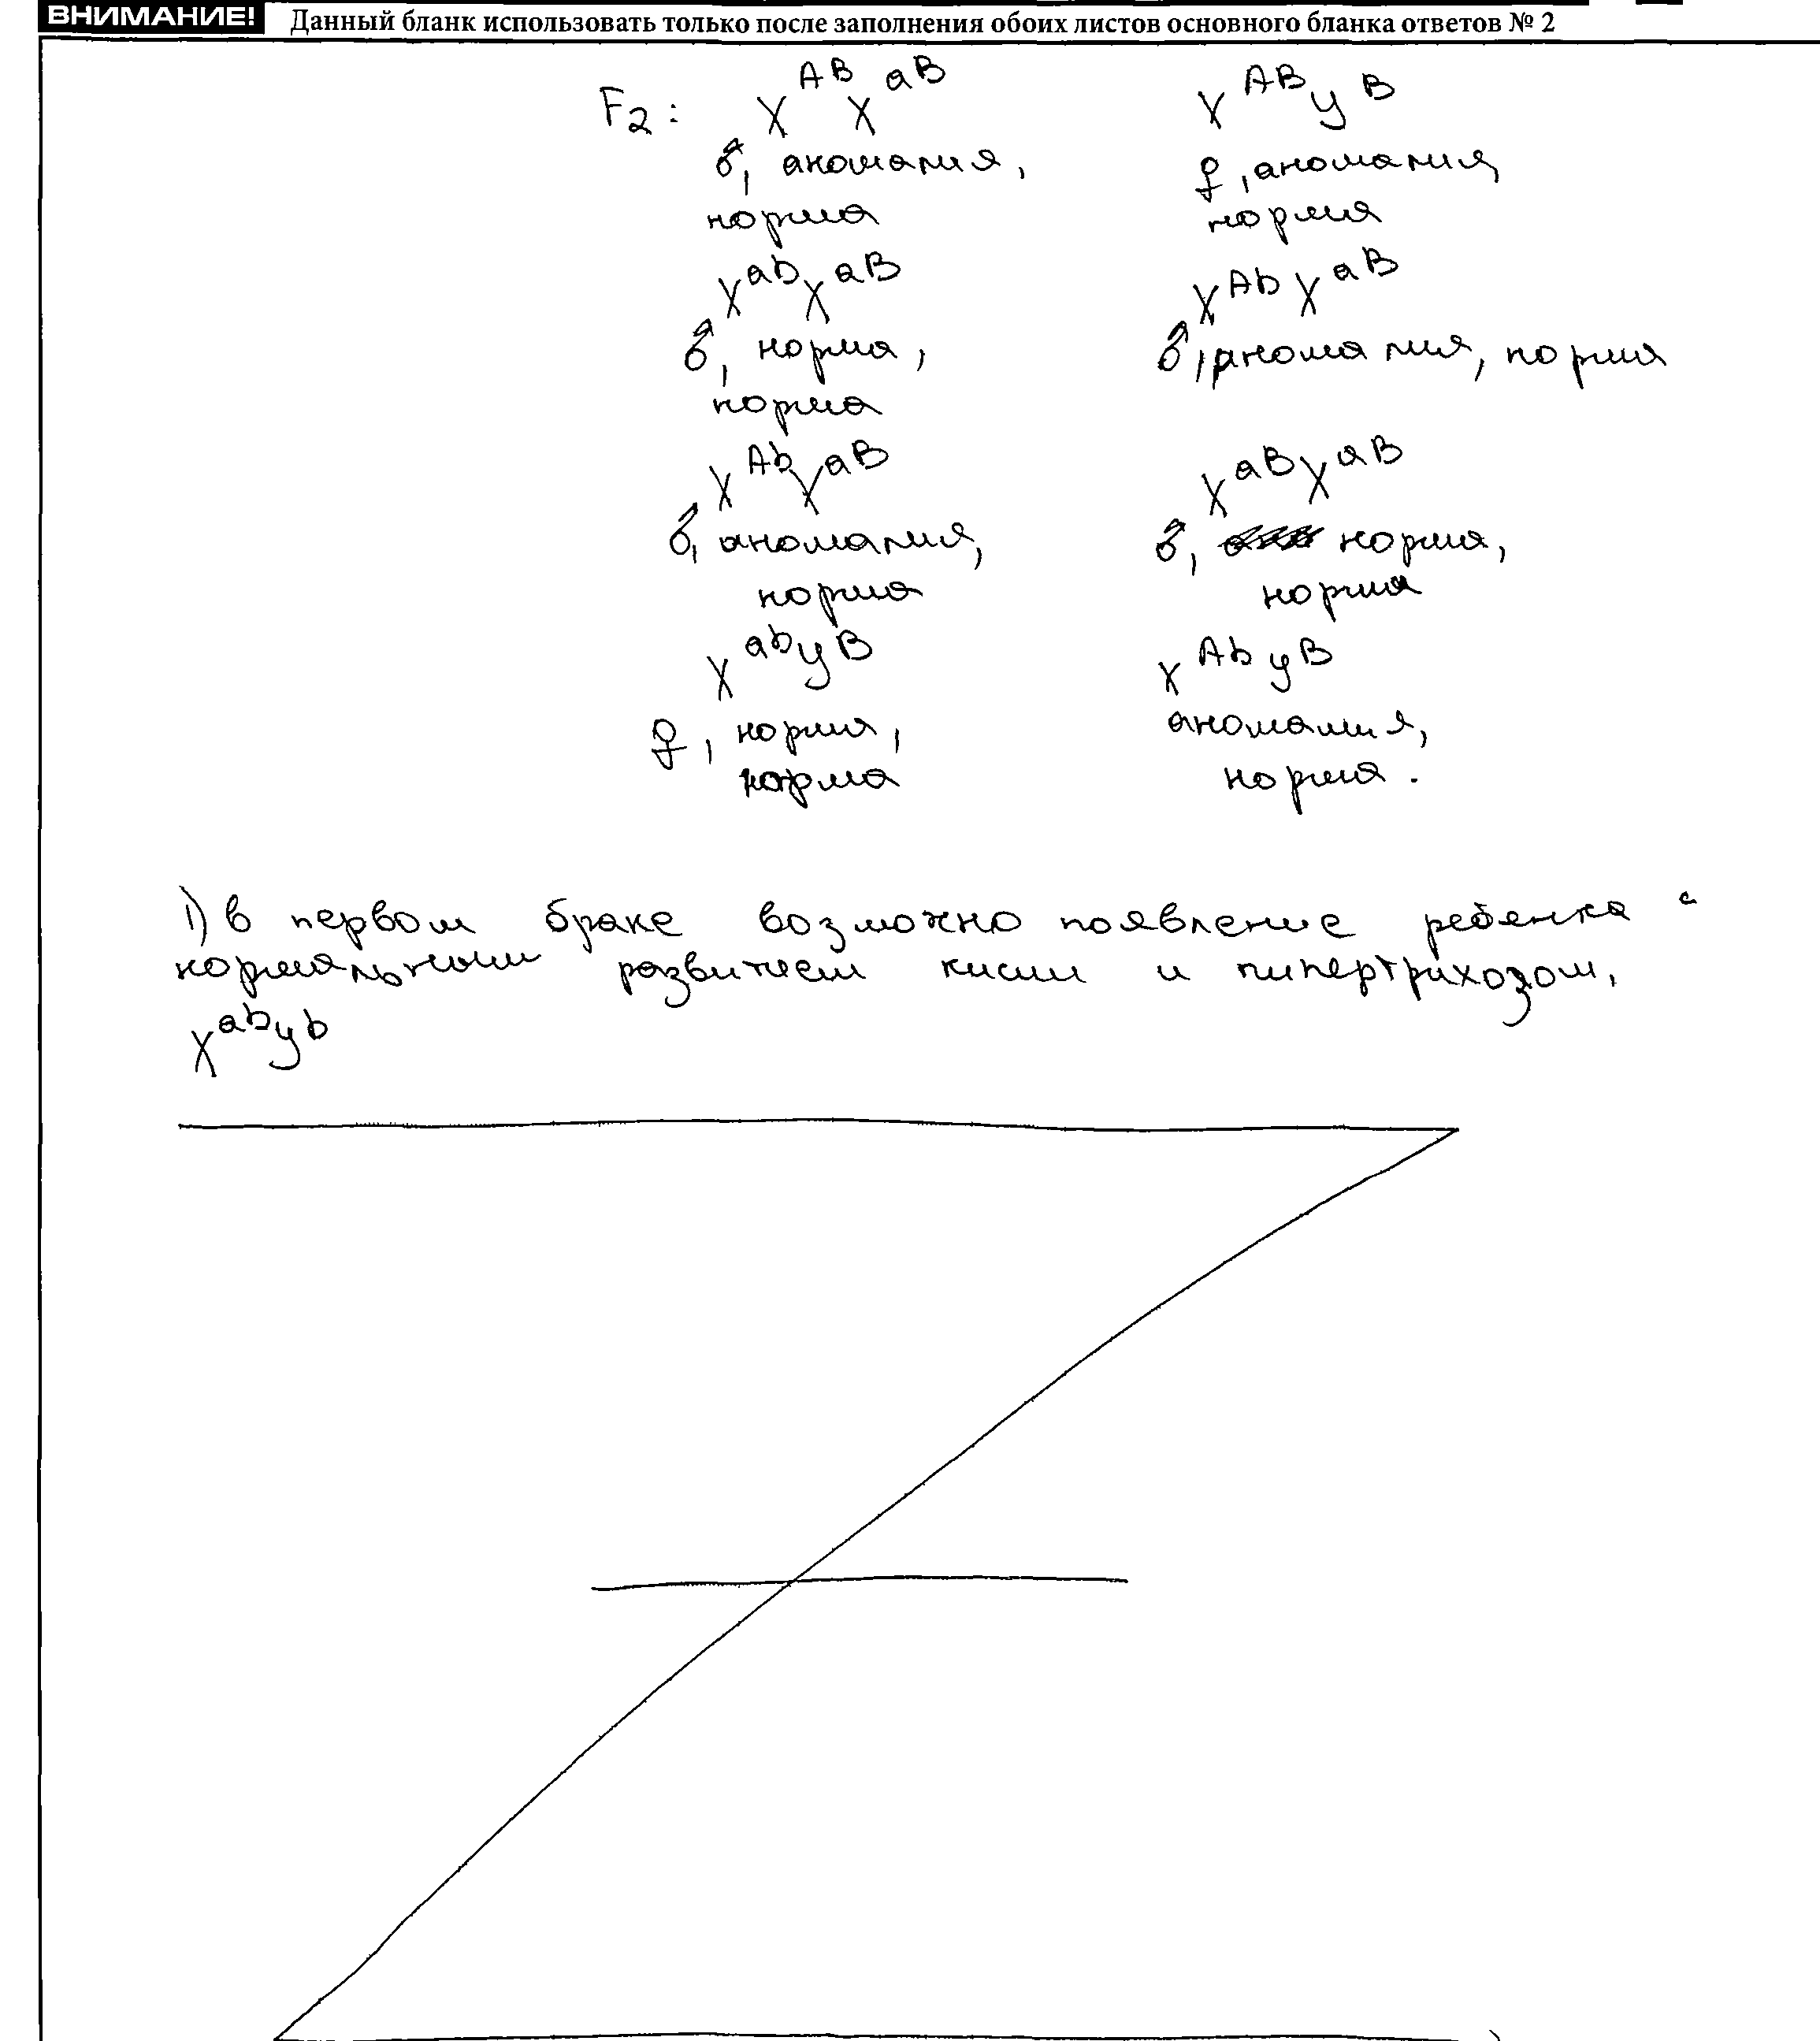 ВНИМАНИЕ! Данный бланк использовать только после заполнения обоих листов основного бланка ответов № 2
F2: X^AB X^aB X^AB y^B
♂, аномалия, ♀, аномалия,
норма норма
X^ab X^aB X^Ab X^aB
♂, норма, ♂, аномалия, норма
норма
X^Ab X^aB X^aB X^aB
♂, аномалия, ♂, норма,
норма норма
X^ab y^B X^Ab y^B
♀, норма, аномалия,
норма норма.
1) в первом браке возможно появление ребёнка с
нормальным развитием кисти и гипертрихозом,
X^ab y^b